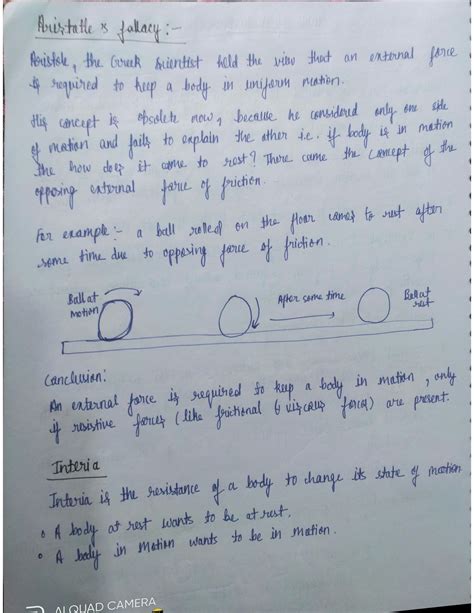 Aristotle's fallacy :-
Aristotle, the Greek Scientist held the view that an external force
is required to keep a body in uniform motion.
His concept is obsolete now, because he considered only one side
of motion and fails to explain the other i.e. if body is in motion
the how does it come to rest? There came the concept of the
opposing external force of friction.
For example:- a ball rolled on the floor comes to rest after
some time due to opposing force of friction.
Ball at
motion
After some time
Ball at
rest
Conclusion:
An external force is required to keep a body in motion, only
if resistive forces (like frictional & viscous forces) are present.
Interia
Interia is the resistance of a body to change its state of motion
• A body at rest wants to be at rest.
• A body in motion wants to be in motion.
AI QUAD CAMERA